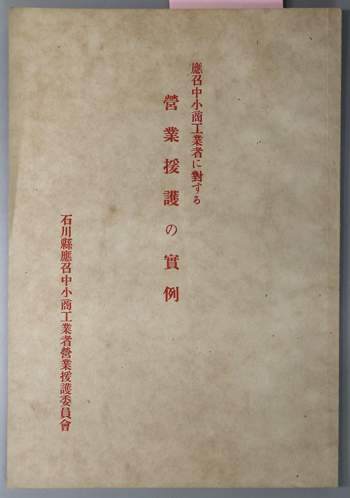 應召中小商工業者に對する
營業援護の實例
石川縣應召中小商工業者營業援護委員會